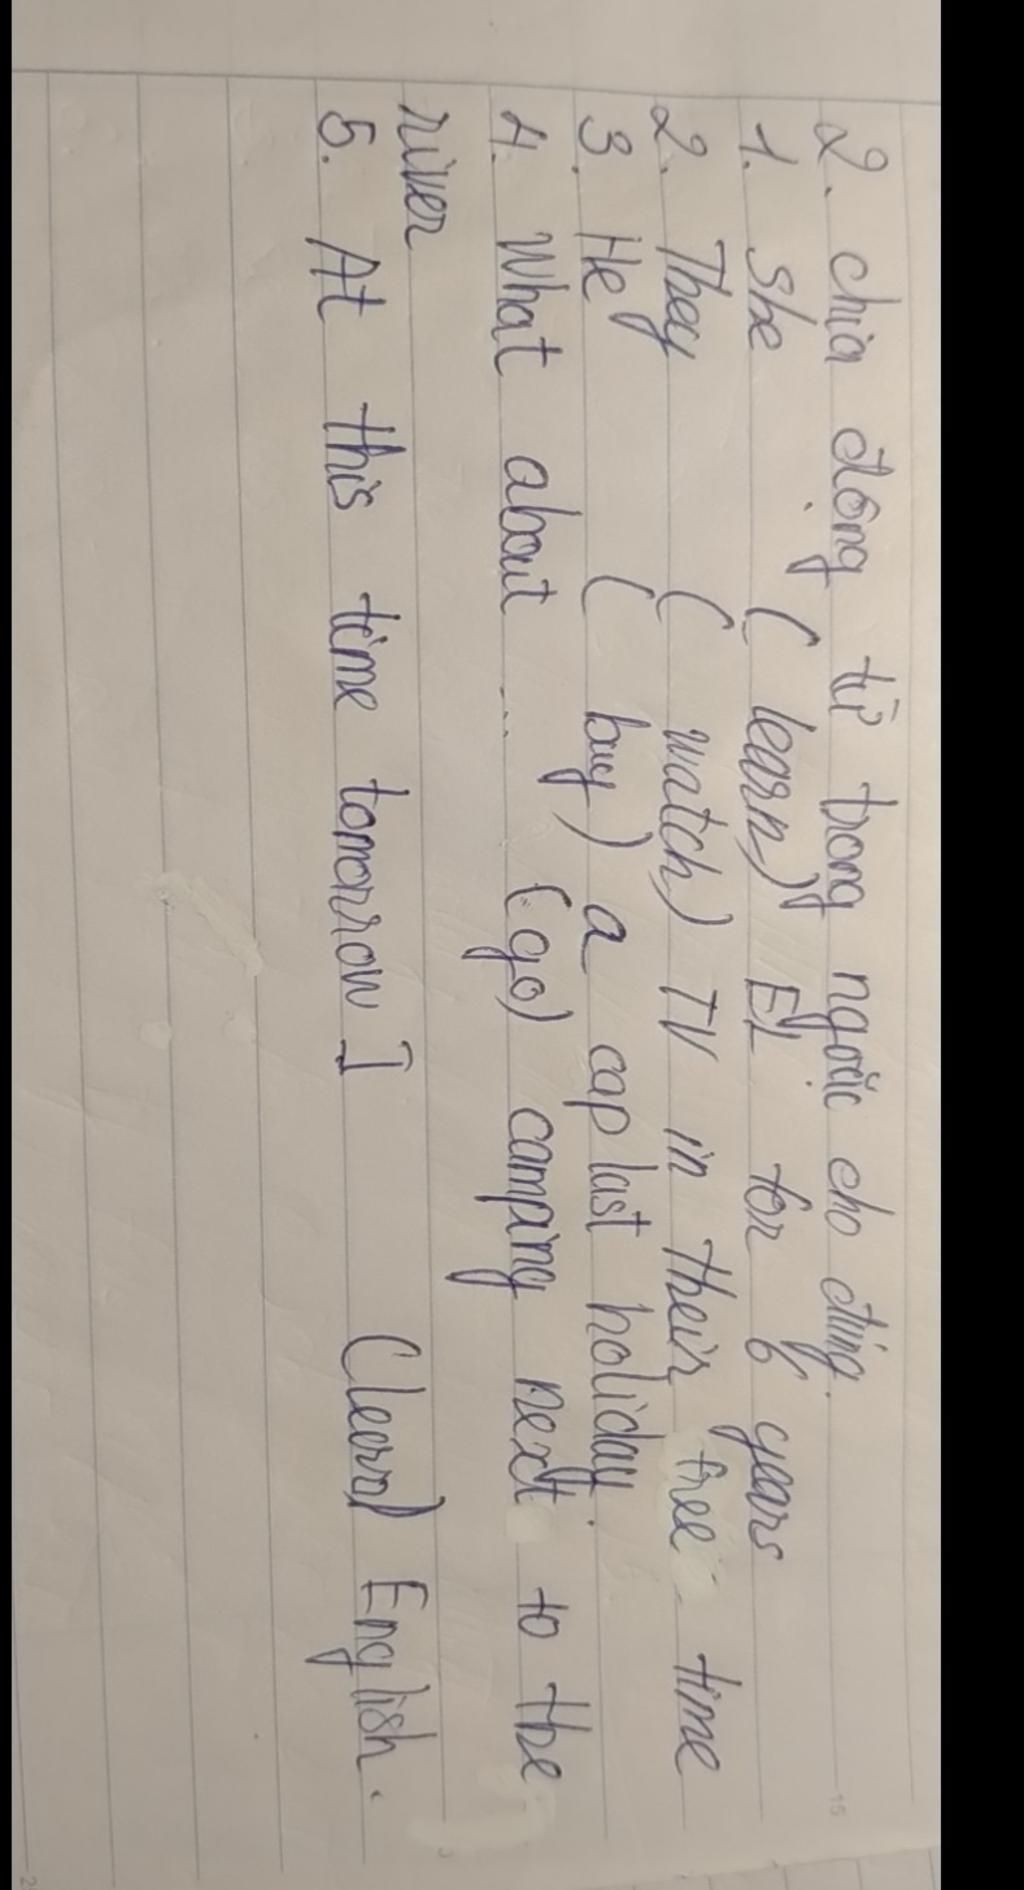 2. chia động từ trong ngoặc cho đúng.
1. She ( learn) EL for 6 years
2. They ( watch) TV in their free time
3. He ( buy) a cap last holiday.
4. What about ... (go) camping next to the
river
5. At this time tomorrow I (learn) English.
15